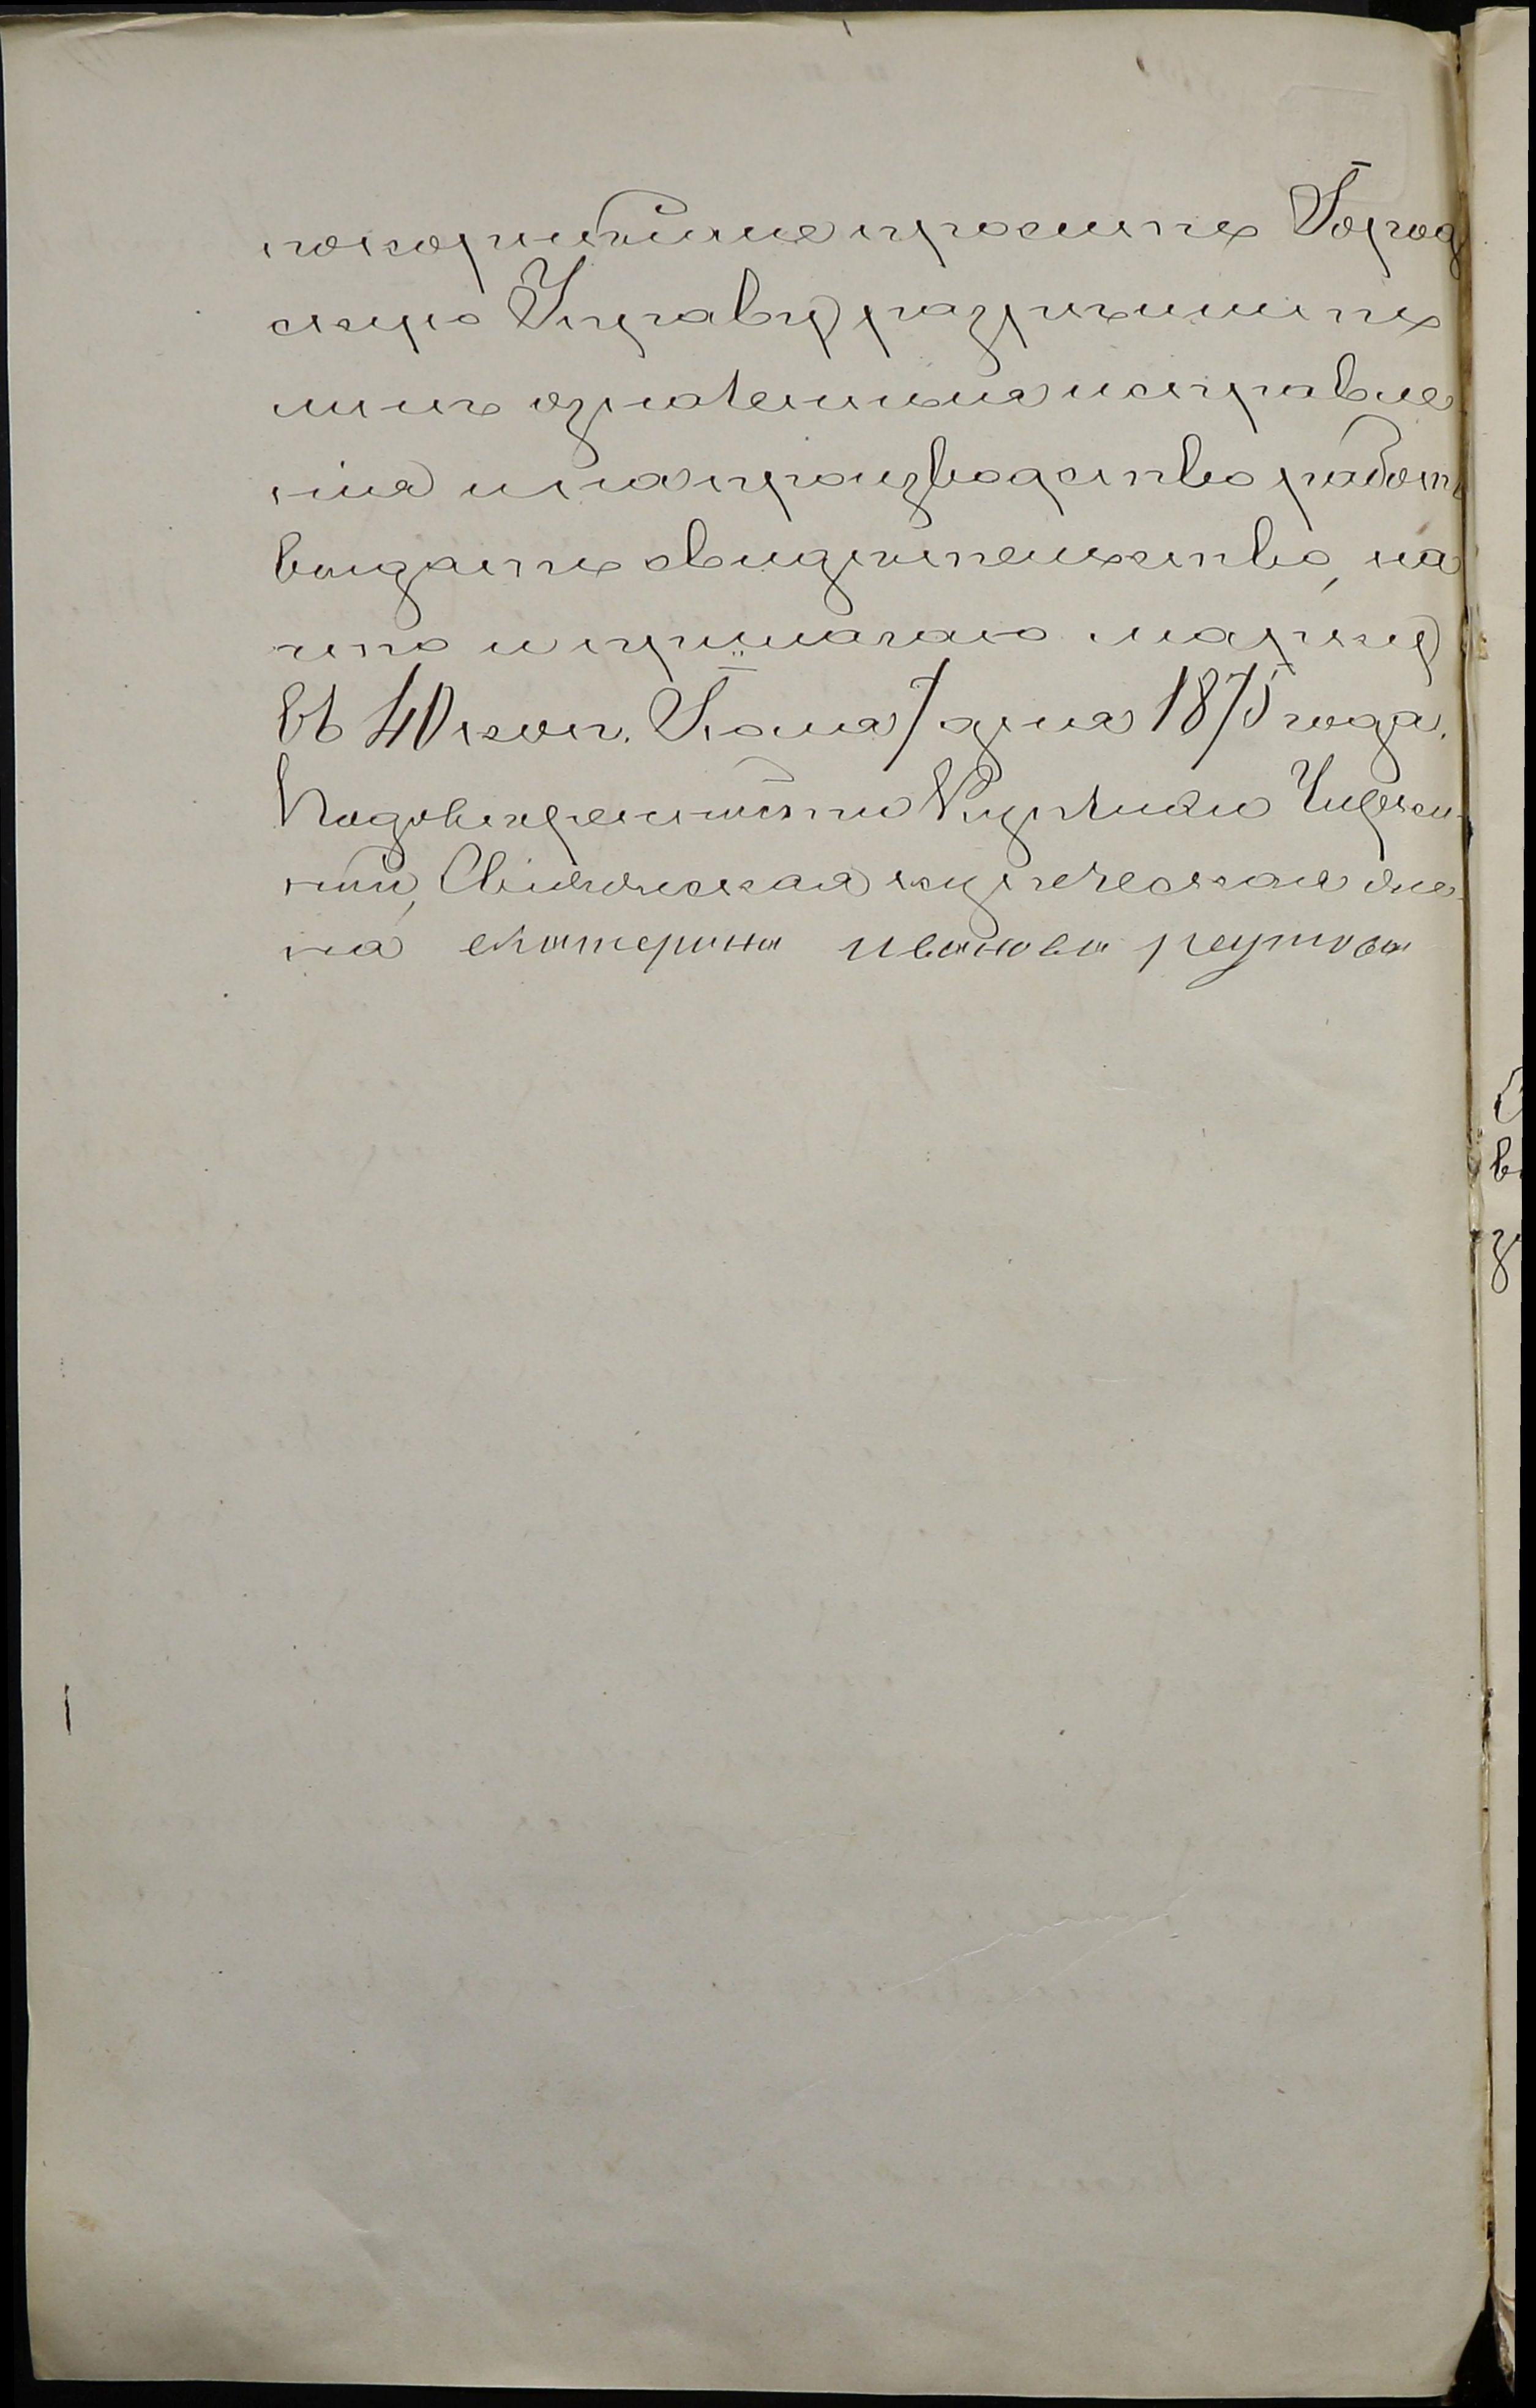 покорнѣйше просить Город
скую Управу разрѣшить
мнѣ означенныя исправле
нія и на производство работъ
выдать свидѣтельство, на
что и прилагаю марку
въ 40 коп. Іюля 7 дня 1875 года.
свіяжская купеческая же
на екатерина иванова реутова